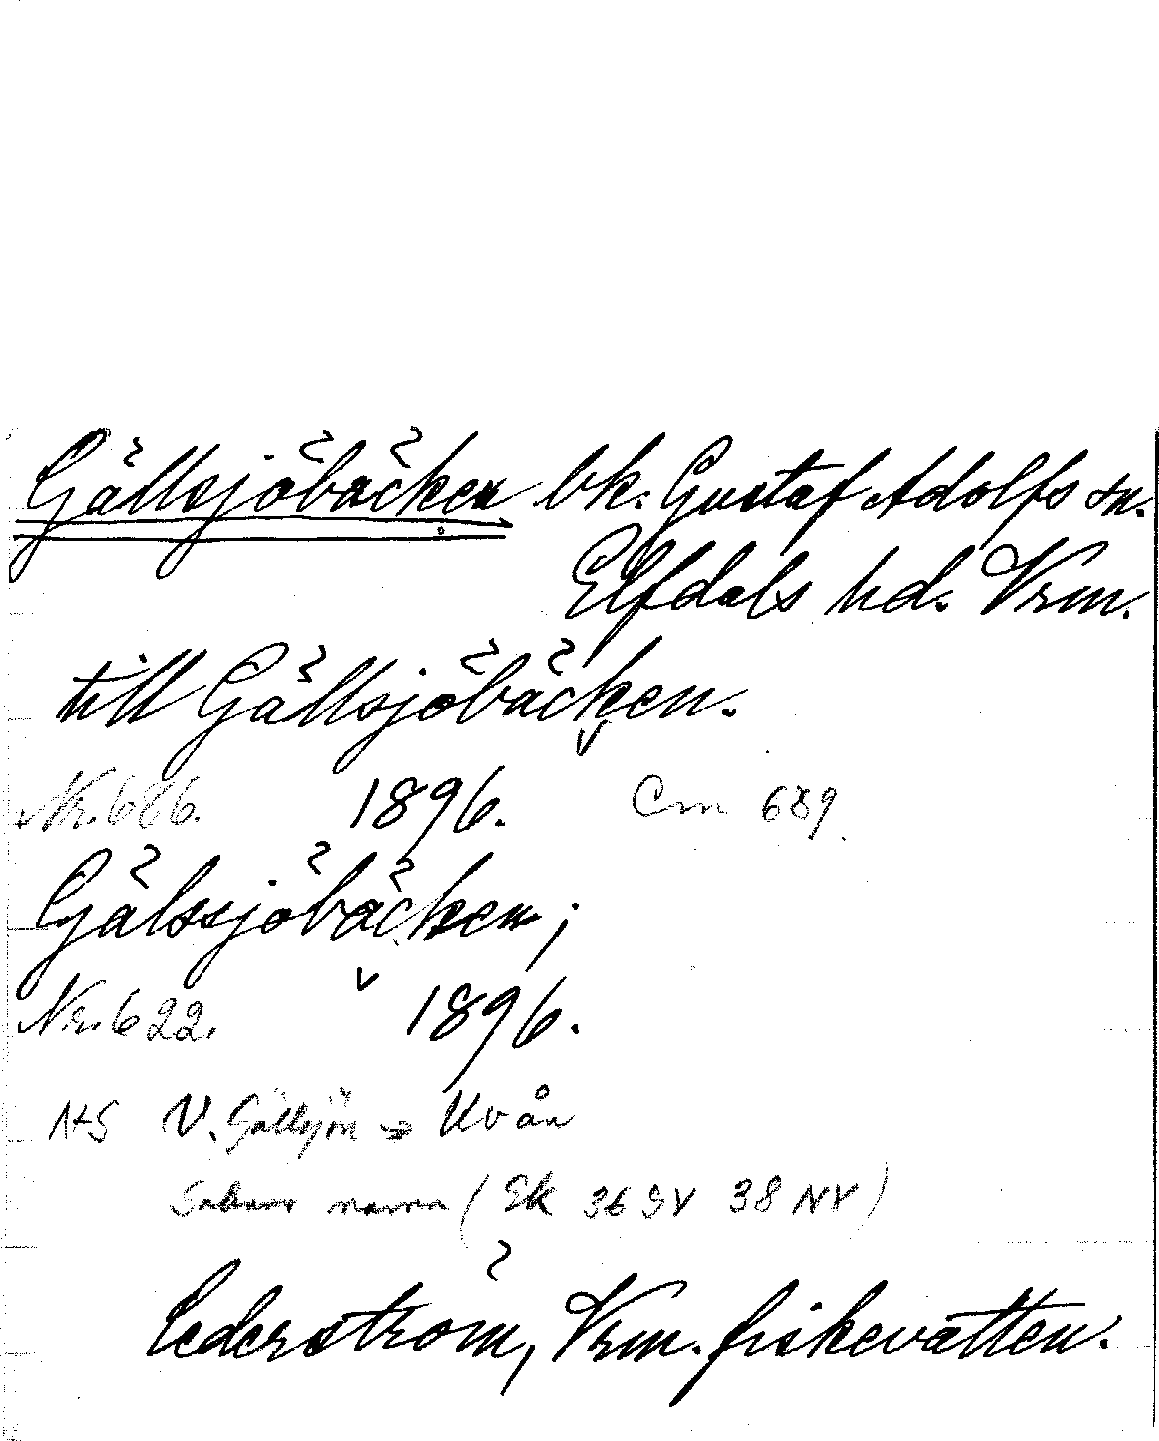 Gällsjöbäcken bk. Gustaf Adolfs sn.
Elfdals hd. Vrm.
till Gällsjöbäcken.
Nr. 686. 1896. Cm 689
Gälssjöbäcken;
Nr. 622. 1896.
N+S V. Gällsjön → Uvån
Saknar namn (Ek 36 SV 38 NV)
Cederström, Vrm. fiskevatten.